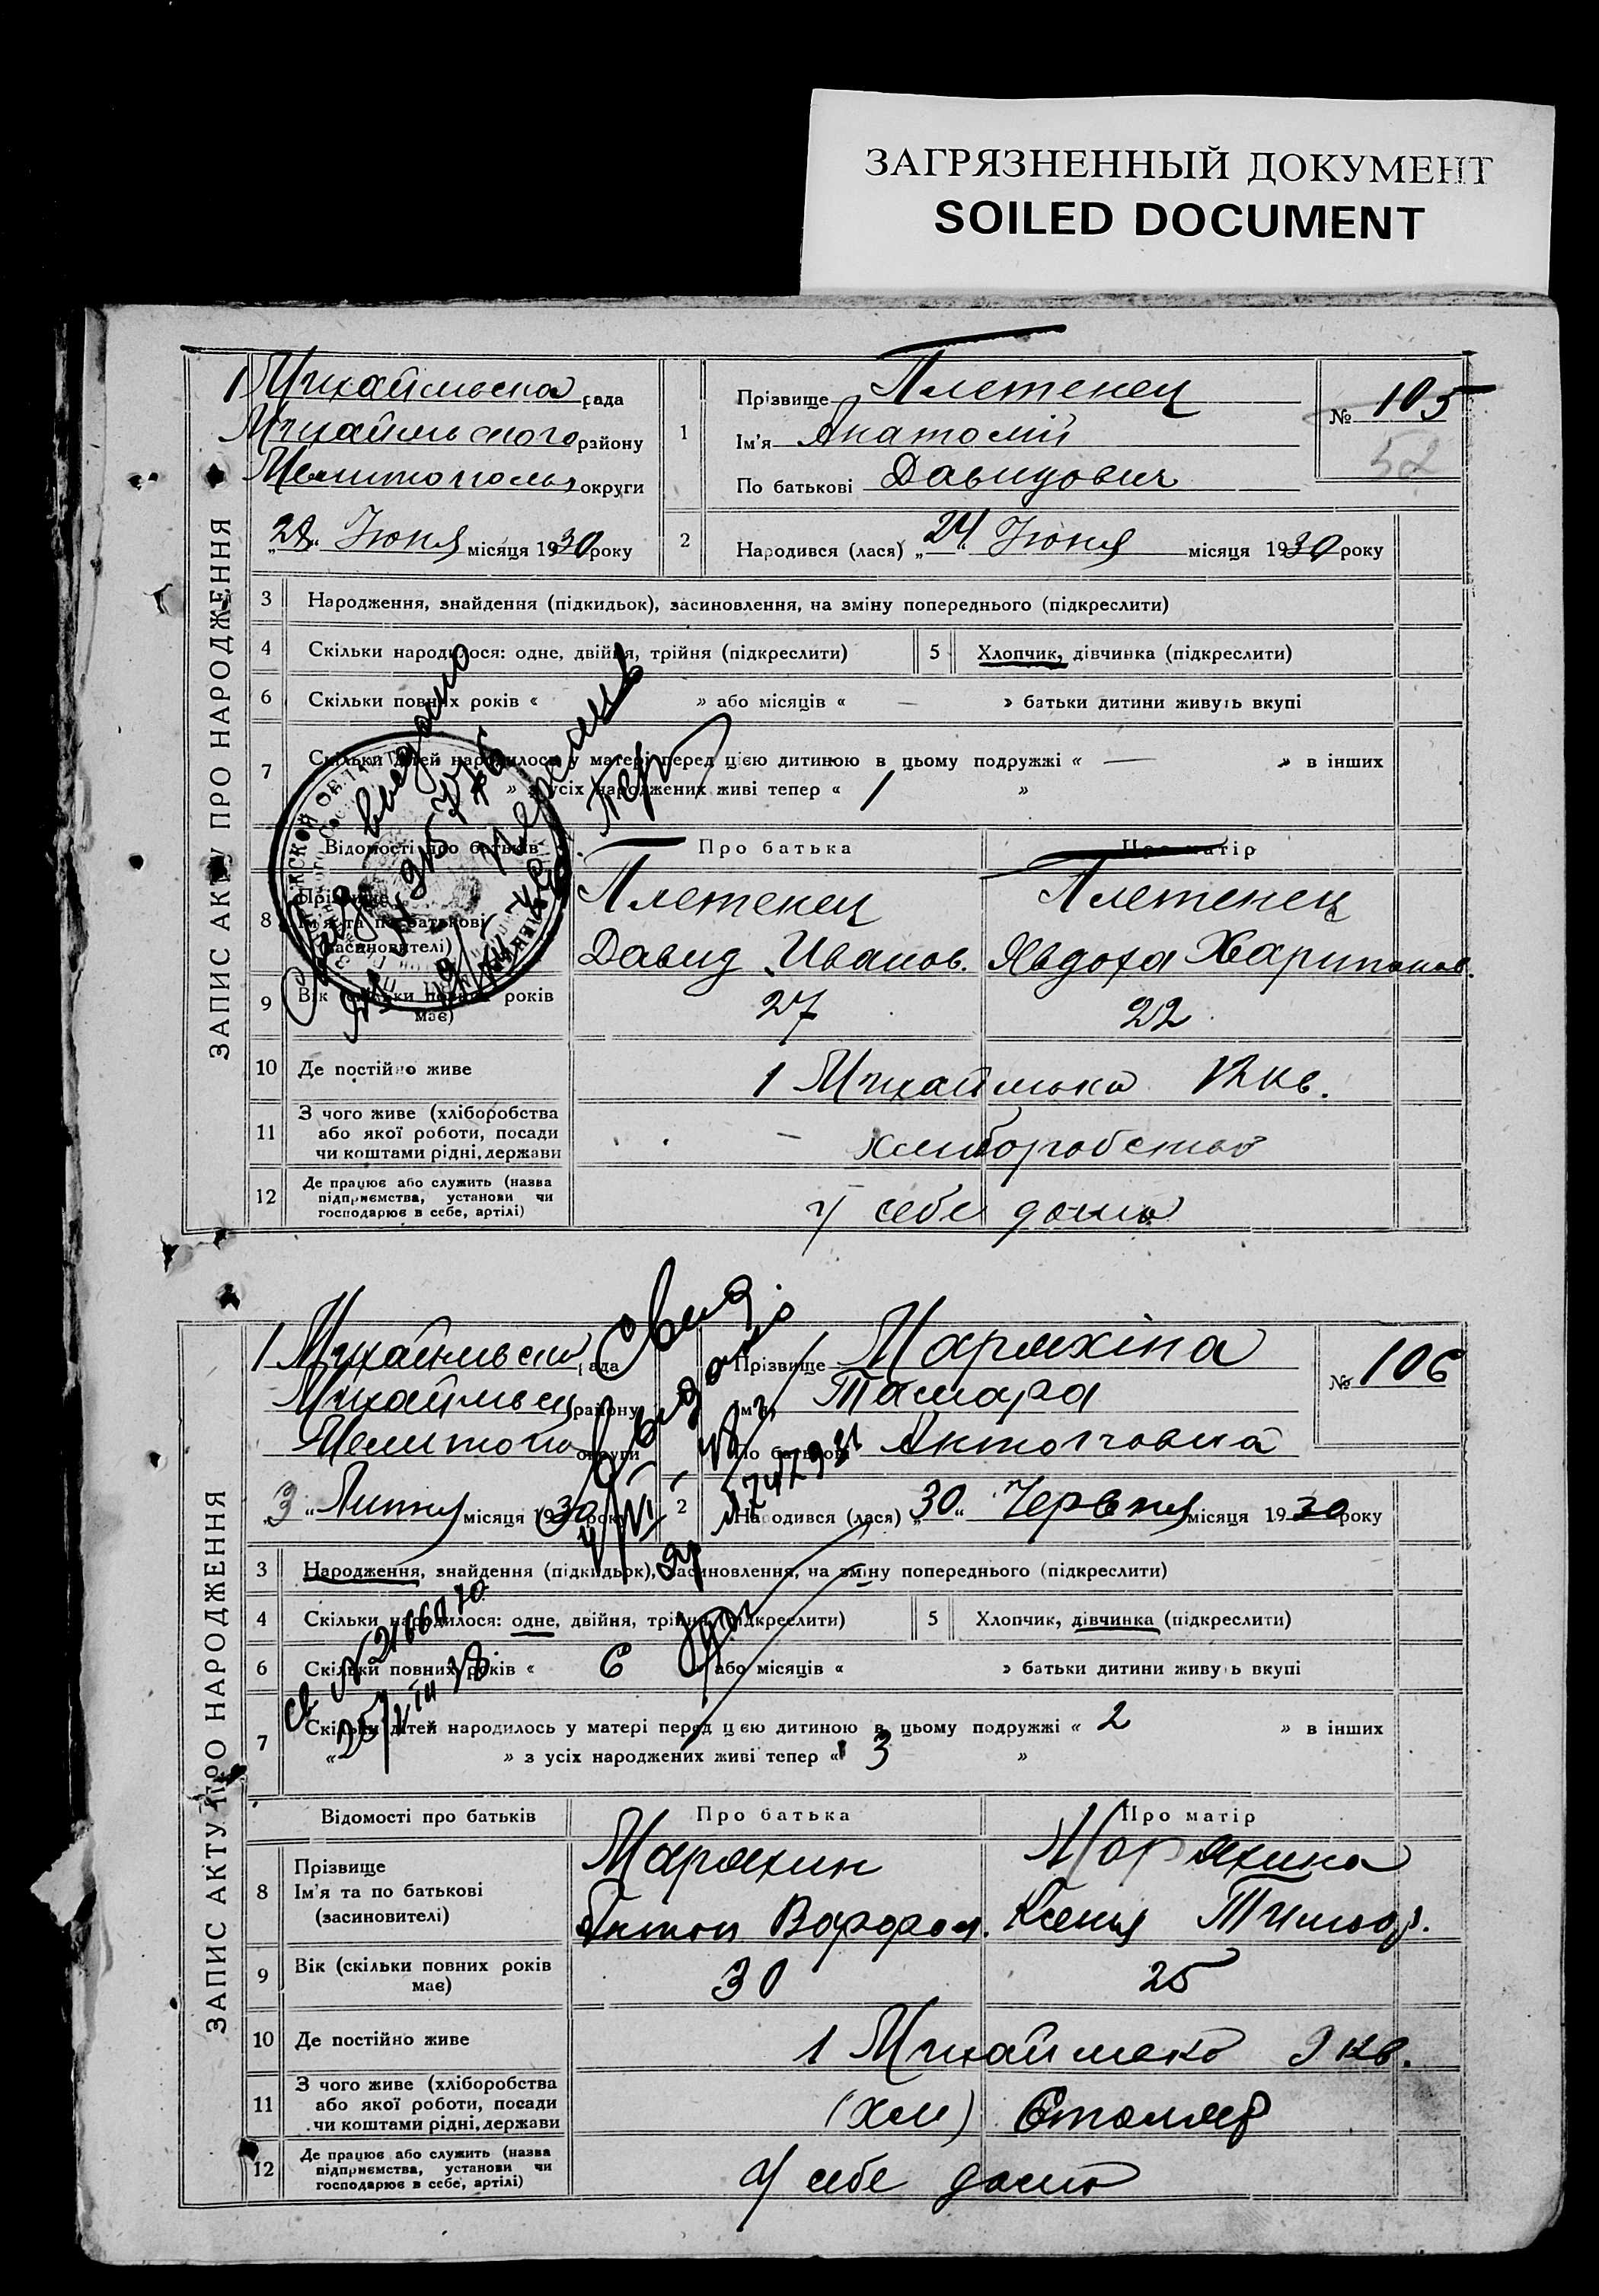 ЗАГРЯЗНЕННЫЙ ДОКУМЕНТ
SOILED DOCUMENT
ЗАПИС АКТУ ПРО НАРОДЖЕННЯ
1 Михайлівська рада
Михайлівського району
Мелитополь округи
"28" Июня місяця 1930 року
1
Прізвище Плетенец
Ім'я Анатолій
По батькові Давидович
№ 105
52
2
Народився (лася) "24" Июня місяця 1930 року
3 Народження, знайдення (підкидьок), засиновлення, на зміну попереднього (підкреслити)
4 Скільки народилося: одне, двійня, трійня (підкреслити)
5 Хлопчик, дівчинка (підкреслити)
6 Скільки повних років « » або місяців « — » батьки дитини живуть вкупі
7 Скільки дітей народилось у матері перед цією дитиною в цьому подружжі « — » в інших
» з усіх народжених живі тепер « 1 »
Відомості про батьків
Про батька
Про матір
8 Прізвище
Ім'я та по батькові
(засиновителі)
Плетенец
Давид Иванов.
Плетенец
Явдоха Харитонов.
9 Вік (скільки повних років має)
27
22
10 Де постійно живе
1 Михайлівка 12 кв.
11 З чого живе (хліборобства
або якої роботи, посади
чи коштами рідні, держави
хліборобство
12 Де працює або служить (назва
підприємства, установи чи
господарює в себе, артілі)
У себе дома
ЗАПИС АКТУ ПРО НАРОДЖЕННЯ
1 Михайлівськ рада
Михайлівськ району
Мелитопо округи
"3" Липня місяця 1930 року
Свид. выдано
Прізвище Маряхіна
Ім'я Тамара
По батькові Антоновна
№ 106
2
Народився (лася) "30" Червня місяця 1930 року
3 Народження, знайдення (підкидьок), засиновлення, на зміну попереднього (підкреслити)
4 Скільки народилося: одне, двійня, трійня (підкреслити)
5 Хлопчик, дівчинка (підкреслити)
6 Скільки повних років « 6 » або місяців « » батьки дитини живуть вкупі
7 Скільки дітей народилось у матері перед цією дитиною в цьому подружжі « 2 » в інших
« » з усіх народжених живі тепер « 3 »
Відомості про батьків
Про батька
Про матір
8 Прізвище
Ім'я та по батькові
(засиновителі)
Маряхин
Антон
Маряхина
Ксения Тимоф.
9 Вік (скільки повних років має)
30
25
10 Де постійно живе
1 Михайлівка 9 кв.
11 З чого живе (хліборобства
або якої роботи, посади
чи коштами рідні, держави
(хлі) Столяр
12 Де працює або служить (назва
підприємства, установи чи
господарює в себе, артілі)
У себе дома